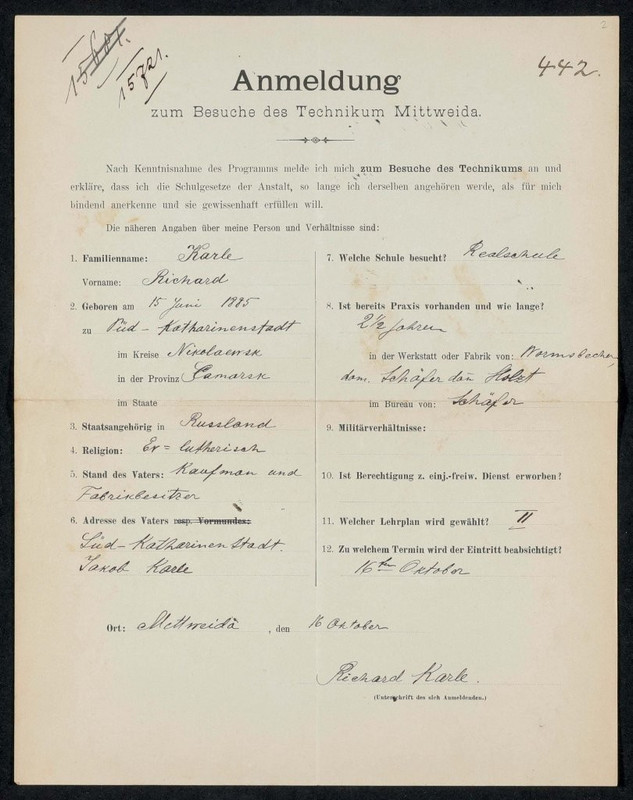 2
15821.
442.
Anmeldung
zum Besuche des Technikum Mittweida.
Nach Kenntnisnahme des Programms melde ich mich zum Besuche des Technikums an und
erkläre, dass ich die Schulgesetze der Anstalt, so lange ich derselben angehören werde, als für mich
bindend anerkenne und sie gewissenhaft erfüllen will.
Die näheren Angaben über meine Person und Verhältnisse sind:
1. Familienname: Karle
Vorname: Richard
2. Geboren am 15 Juni 1885
zu Süd-Katharinenstadt
im Kreise Nikolaewsk
in der Provinz Samarsk
im Staate
3. Staatsangehörig in Russland
4. Religion: Ev= lutherisch
5. Stand des Vaters: Kaufman und
Fabrikbesitzer
6. Adresse des Vaters resp. Vormundes:
Süd-Katharinenstadt.
Jakob Karle
7. Welche Schule besucht? Realschule
8. Ist bereits Praxis vorhanden und wie lange?
2½ Jahren
in der Werkstatt oder Fabrik von: Wormsbecher,
dom. Schäfer dan Holzt
im Bureau von: Schäfer
9. Militärverhältnisse:
10. Ist Berechtigung z. einj.-freiw. Dienst erworben?
11. Welcher Lehrplan wird gewählt? II
12. Zu welchem Termin wird der Eintritt beabsichtigt?
16ten Oktober
Ort: Mittweida, den 16 Oktober
Richard Karle.
(Unterschrift des sich Anmeldenden.)